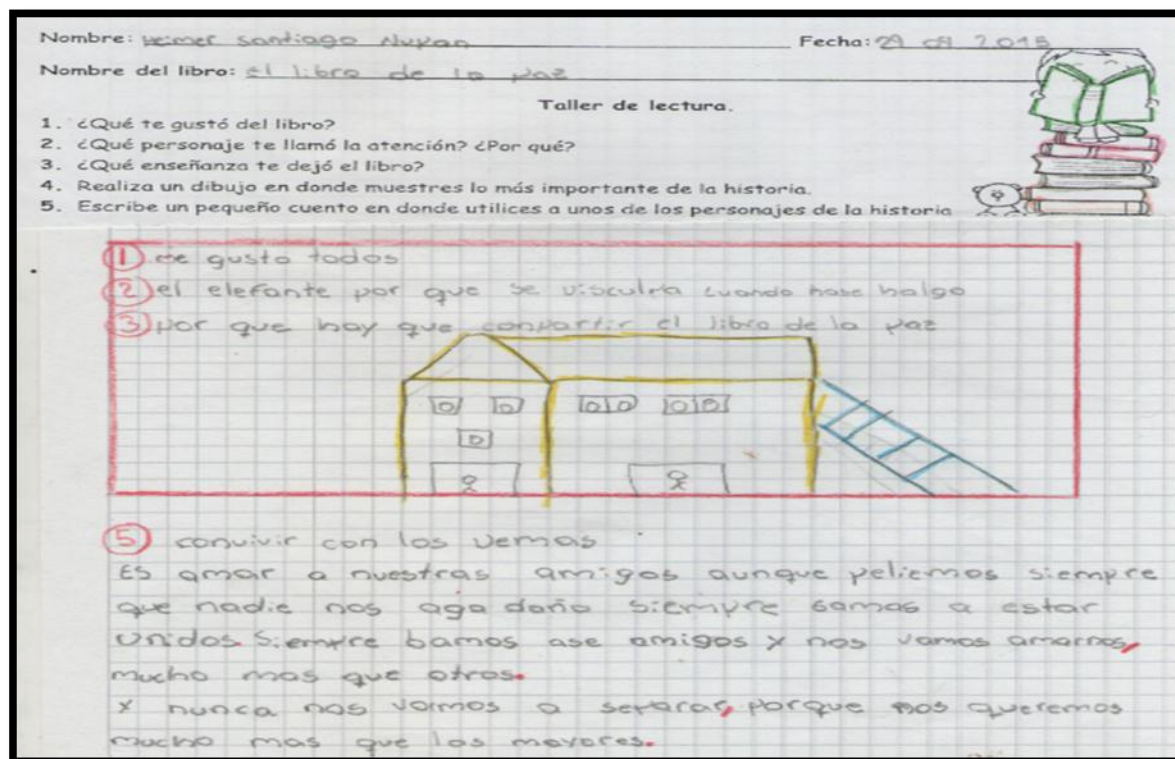 Nombre: Heimer Santiago Fecha: 29 09 2015
Nombre del libro: el libro de la paz
Taller de lectura.
1. ¿Qué te gustó del libro?
2. ¿Qué personaje te llamó la atención? ¿Por qué?
3. ¿Qué enseñanza te dejó el libro?
4. Realiza un dibujo en donde muestres lo más importante de la historia.
5. Escribe un pequeño cuento en donde utilices a unos de los personajes de la historia
1 me gusto todos
2 el elefante por que se disculpa cuando hase halgo
3 por que hay que conpartir el libro de la paz
5 convivir con los demas
Es amar a nuestras amigos aunque peliemos siempre
que nadie nos aga daño siempre bamos a estar
unidos. Siempre bamos ase amigos y nos vamos amarnos,
mucho mas que otros.
y nunca nos vamos a separar, porque nos queremos
mucho mas que los mayores.